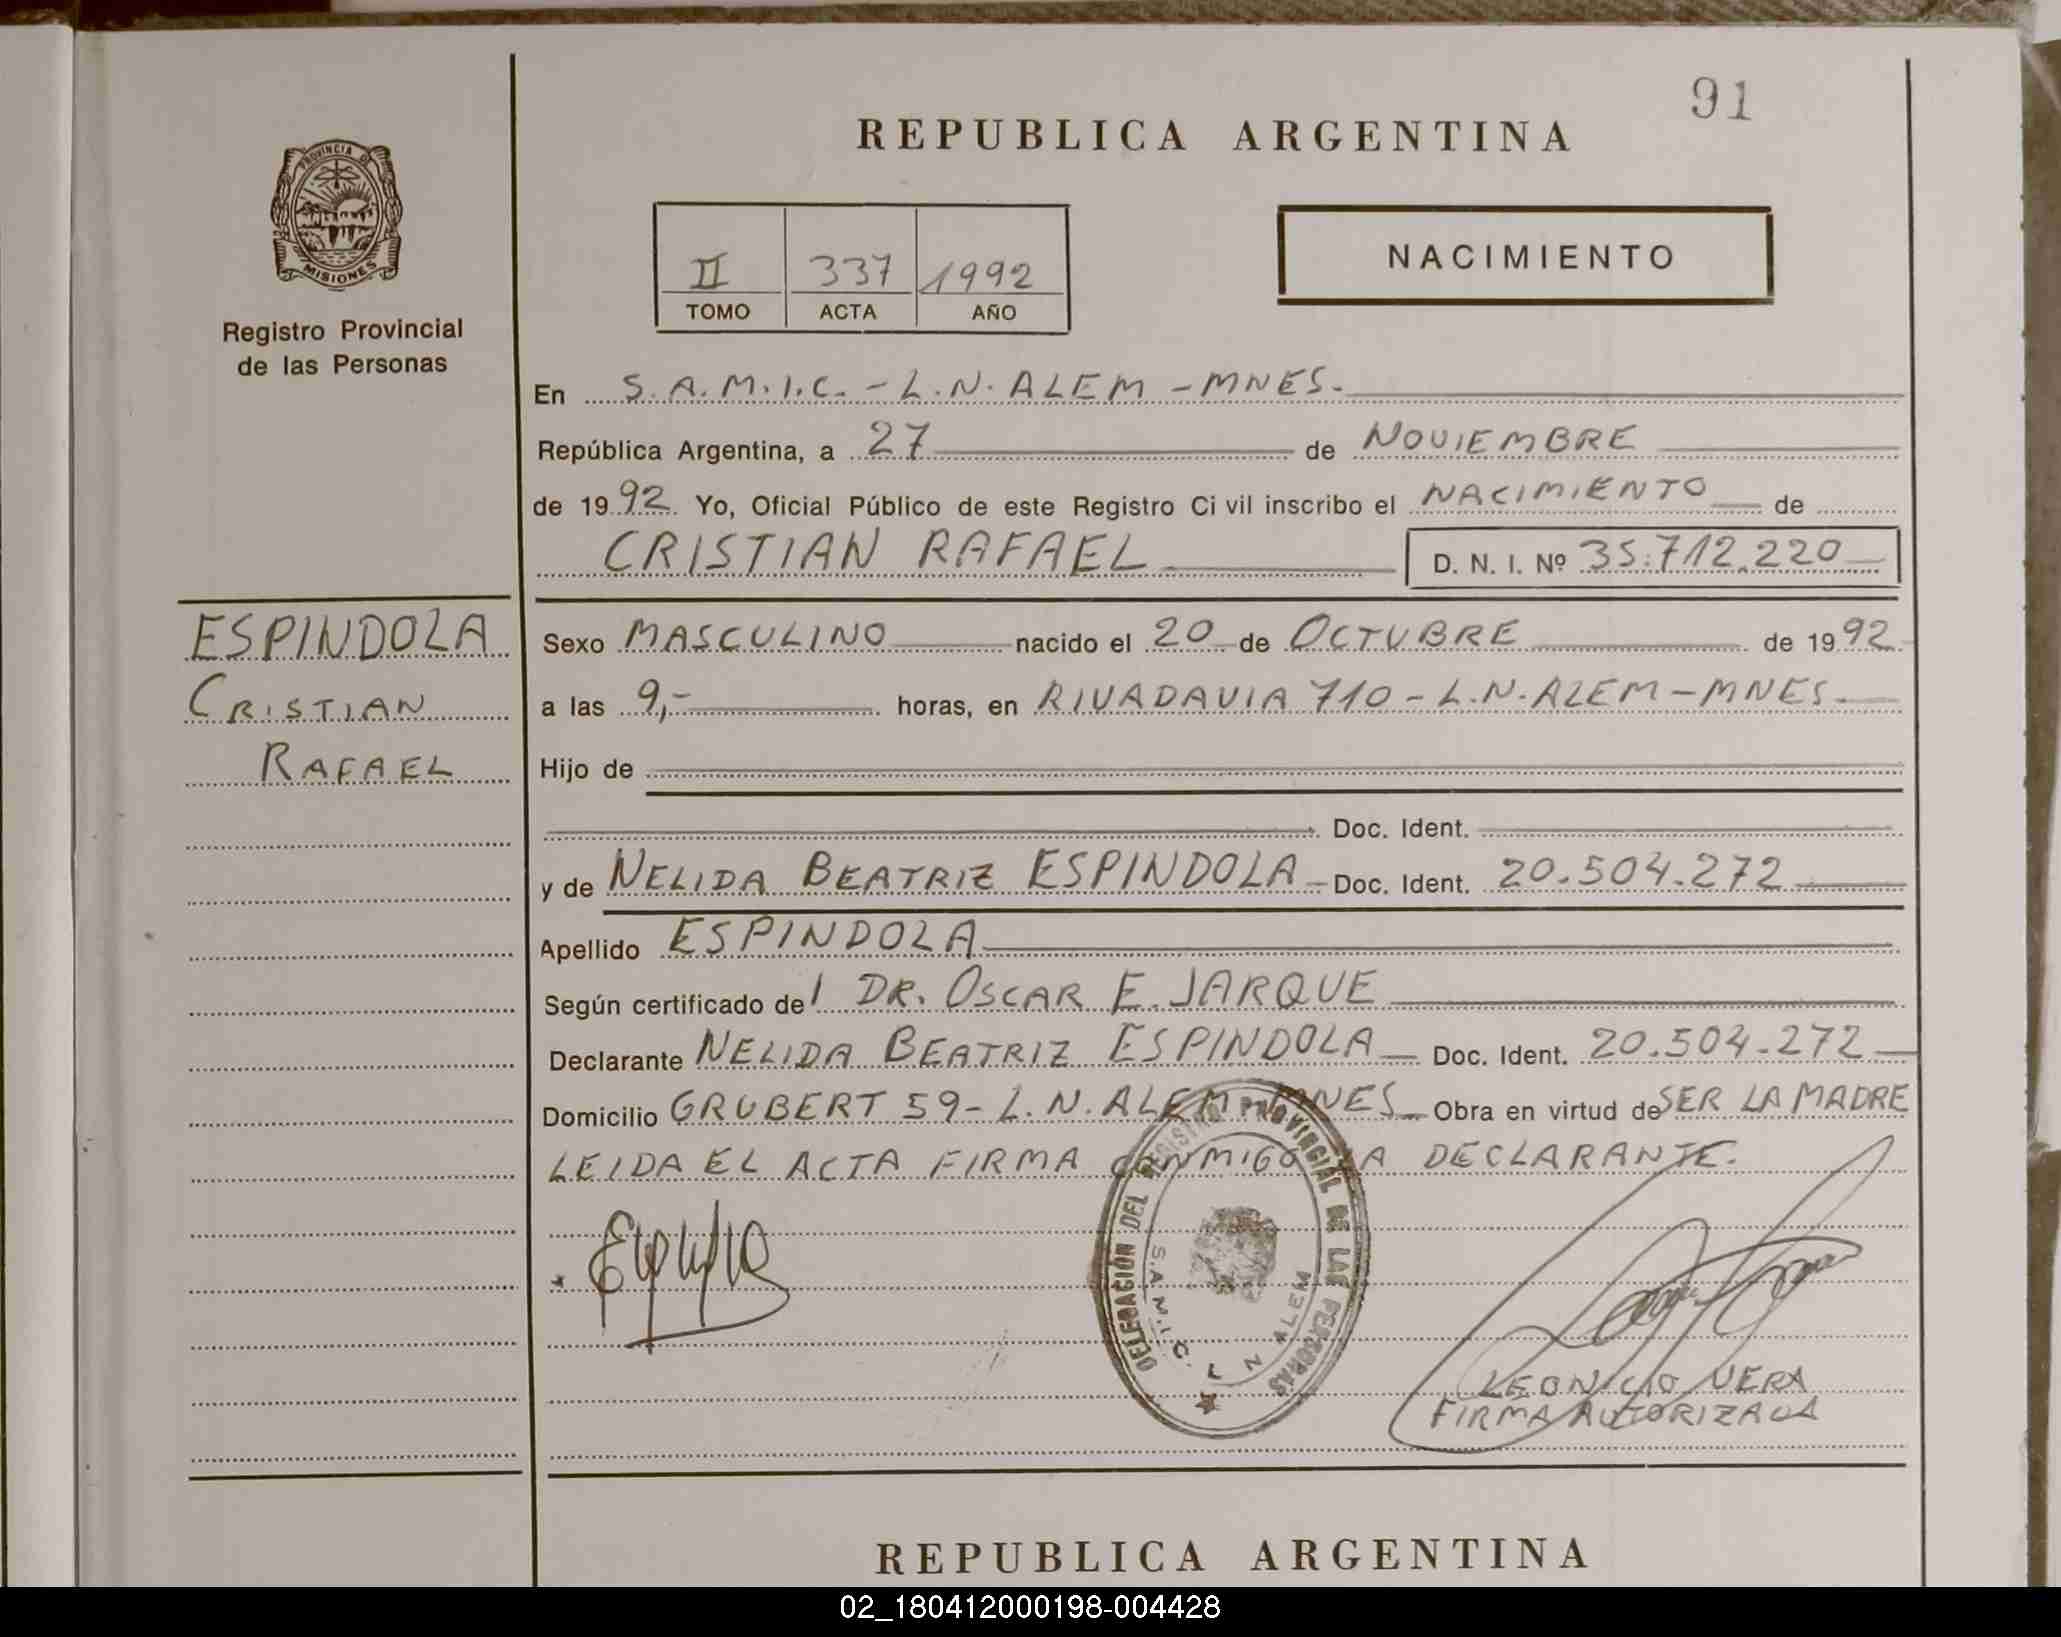 91
REPUBLICA ARGENTINA
PROVINCIA DE
MISIONES
Registro Provincial
de las Personas
II 337 1992
TOMO ACTA AÑO
NACIMIENTO
En S.A.M.I.C. - L.N. ALEM - MNES.
República Argentina, a 27 de NOVIEMBRE
de 1992. Yo, Oficial Público de este Registro Ci vil inscribo el NACIMIENTO de
CRISTIAN RAFAEL D. N. I. Nº 35.712.220
ESPINDOLA
CRISTIAN
RAFAEL
Sexo MASCULINO nacido el 20 de OCTUBRE de 1992
a las 9,- horas, en RIVADAVIA 710 - L.N. ALEM - MNES
Hijo de
Doc. Ident.
y de NELIDA BEATRIZ ESPINDOLA Doc. Ident. 20.504.272
Apellido ESPINDOLA
Según certificado del DR. OSCAR E. JARQUE
Declarante NELIDA BEATRIZ ESPINDOLA Doc. Ident. 20.504.272
Domicilio GRUBERT 59 - L.N. ALEM MNES Obra en virtud de SER LA MADRE
LEIDA EL ACTA FIRMA CONMIGO LA DECLARANTE.
DELEGACIÓN DEL REGISTRO PROVINCIAL DE LAS PERSONAS
S.A.M.I.C. L N ALEM
LEONICIO VERA
FIRMA AUTORIZADA
REPUBLICA ARGENTINA
02_180412000198-004428